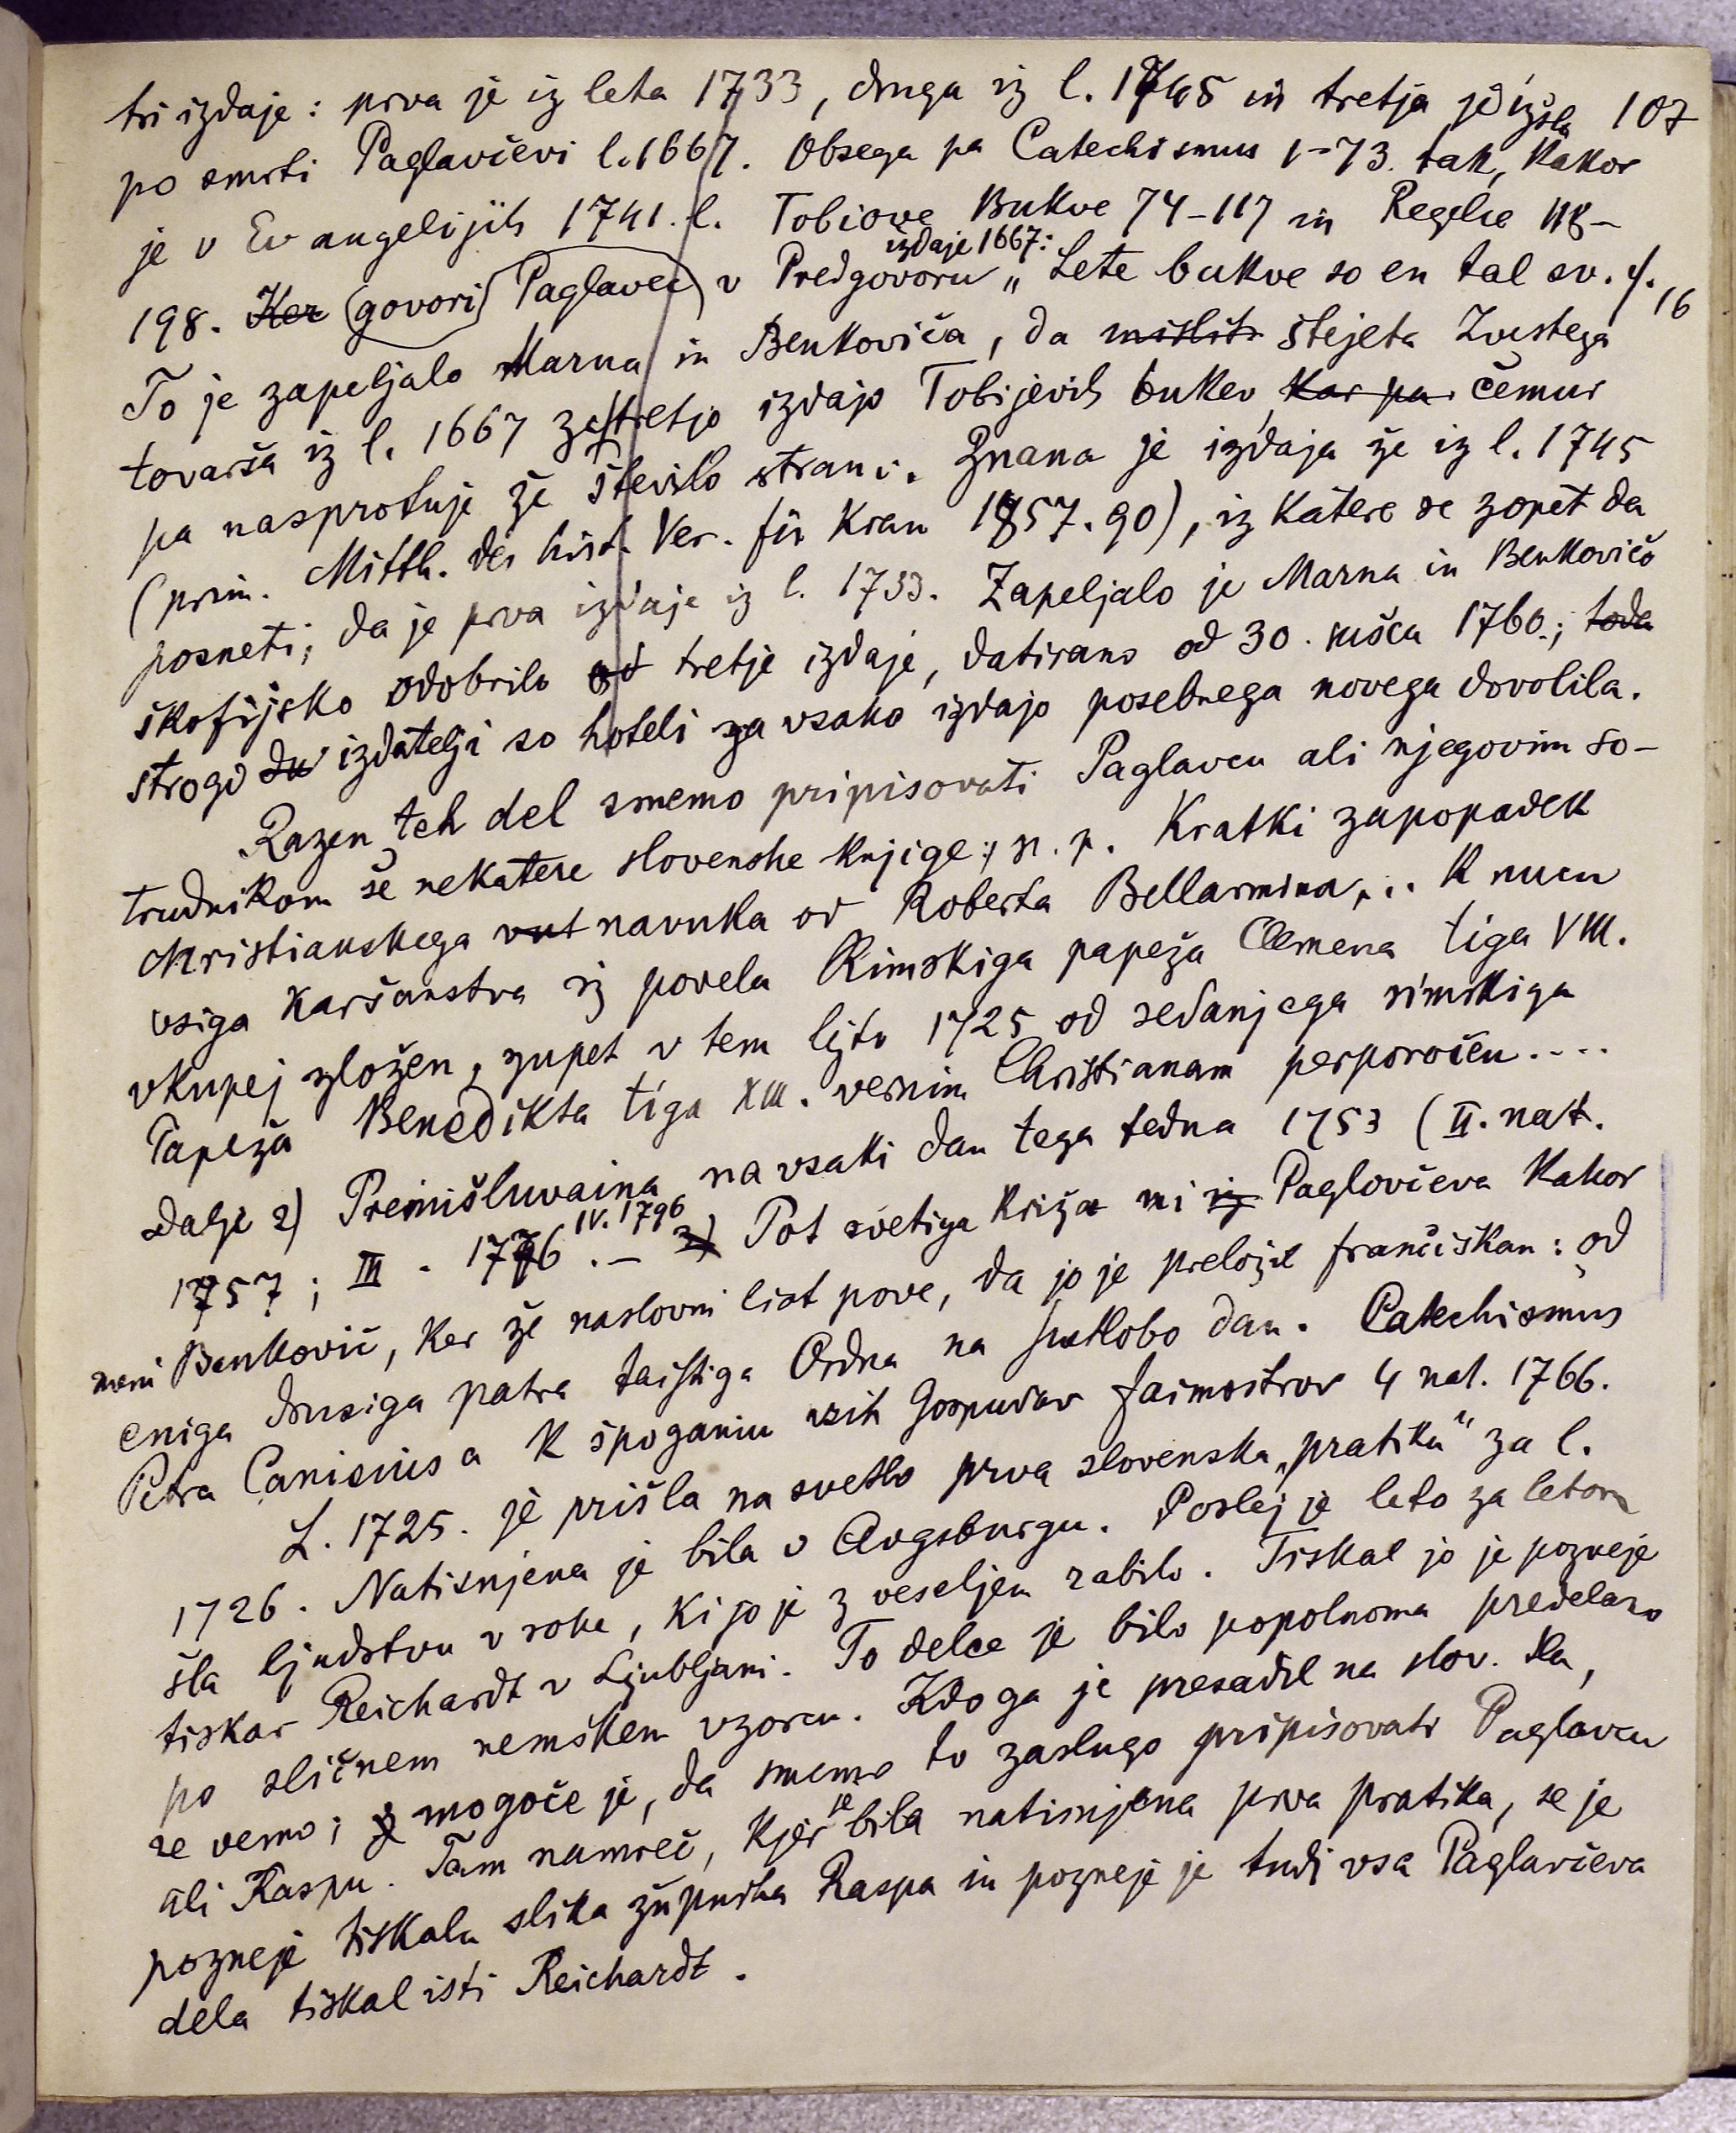 tri izdaje: prva je iz leta 1733, druga iz l. 1745 in tretja je izšla 107
po smrti Paglavčevi l. 1667. Obsega pa Catechismus 1-73. tak, kakor
je v Evangelijih 1741. l. Tobiove Bukve 74-117 in Regelce 118-
198. Ker (govori Paglavec) v Predgovoru izdaje 1667: „Lete bukve so en tal sv. 4. 16
To je zapeljalo Marna in Benkoviča, da mislit štejeta Zvestega
tovarša iz l. 1667 za tretjo izdajo Tobijevih bukev, kar pa čemur
pa nasprotuje že število strani. Znana je izdaja že iz l. 1745
(prim. Mitth. des hist. Ver. für Kran 1857. 90), iz katere se zopet da
posneti, da je prva izdaje iz l. 1733. Zapeljalo je Marna in Benkoviča
škofijsko odobrilo od tretje izdaje, datirano od 30. sušca 1760.; toda
strogo du izdatelji so hoteli za vsako izdajo posebnega novega dovolila.
Razen teh del smemo pripisovati Paglavcu ali njegovim so-
trudnikom še nekatere slovenske knjige; n. p. Kratki zapopadek
christianskega vut navuka od Roberta Bellarmina,.. k nucu
vsiga karšanstva iz povela Rimskiga papeža Clemena tiga VIII.
vkupej zložen, zupet v tem lejtu 1725 od sedanjega rimskiga
Papeža Benedikta tiga XIII. vernim Christianam perporočen....
dalje 2) Premišluvaina na vsaki dan tega tedna 1753 (II. nat.
1757; III. 1776 IV. 1796 .- 3) Pot svetiga križa ni iz Paglovčeva kakor
meni Benkovič, ker že naslovni list pove, da jo je preložil frančiškan: od
eniga drusiga patra taistiga Ordna na svetlobo dan. Catechismus
Petra Canisiusa k špoganiu vsih Gospudov faimostrov 4 nat. 1766.
L. 1725. je prišla na svetlo prva slovenska „pratika“ za l.
1726. Natisnjena je bila v Avgsburgu. Poslej je leto za letom
šla ljudstvu v roke, ki jo je z veseljem rabilo. Tiskal jo je pozneje
tiskar Reichardt v Ljubljani. To delce je bilo popolnoma predelano
po sličnem nemškem vzorcu. Kdo ga je presadil na slov. tla,
ne vemo; j mogoče je, da smemo to zaslugo pripisovati Paglavcu
ali Raspu. Tam namreč, kjer je bila natisnjena prva pratika, se je
pozneje tiskala slika župnika Raspa in pozneje je tudi vsa Paglavčeva
dela tiskal isti Reichardt.